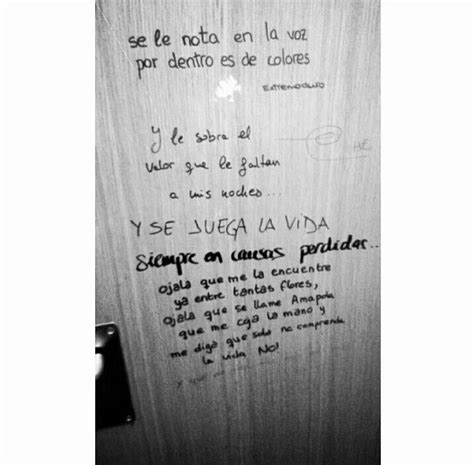 se le nota en la voz
por dentro es de colores
Extremoduro
Y le sobra el
HE
valor que le faltan
a mis noches...
Y SE JUEGA LA VIDA
siempre en causas perdidas...
ojala que me la encuentre
ya entre tantas flores,
ojala que se llame Amapola
que me coja la mano y
me diga que sola no comprende
la vida No!